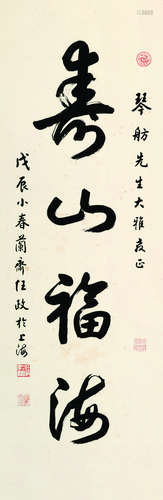 琴舫先生大雅教正
寿山福海
戊辰小春蘭齋任政於上海